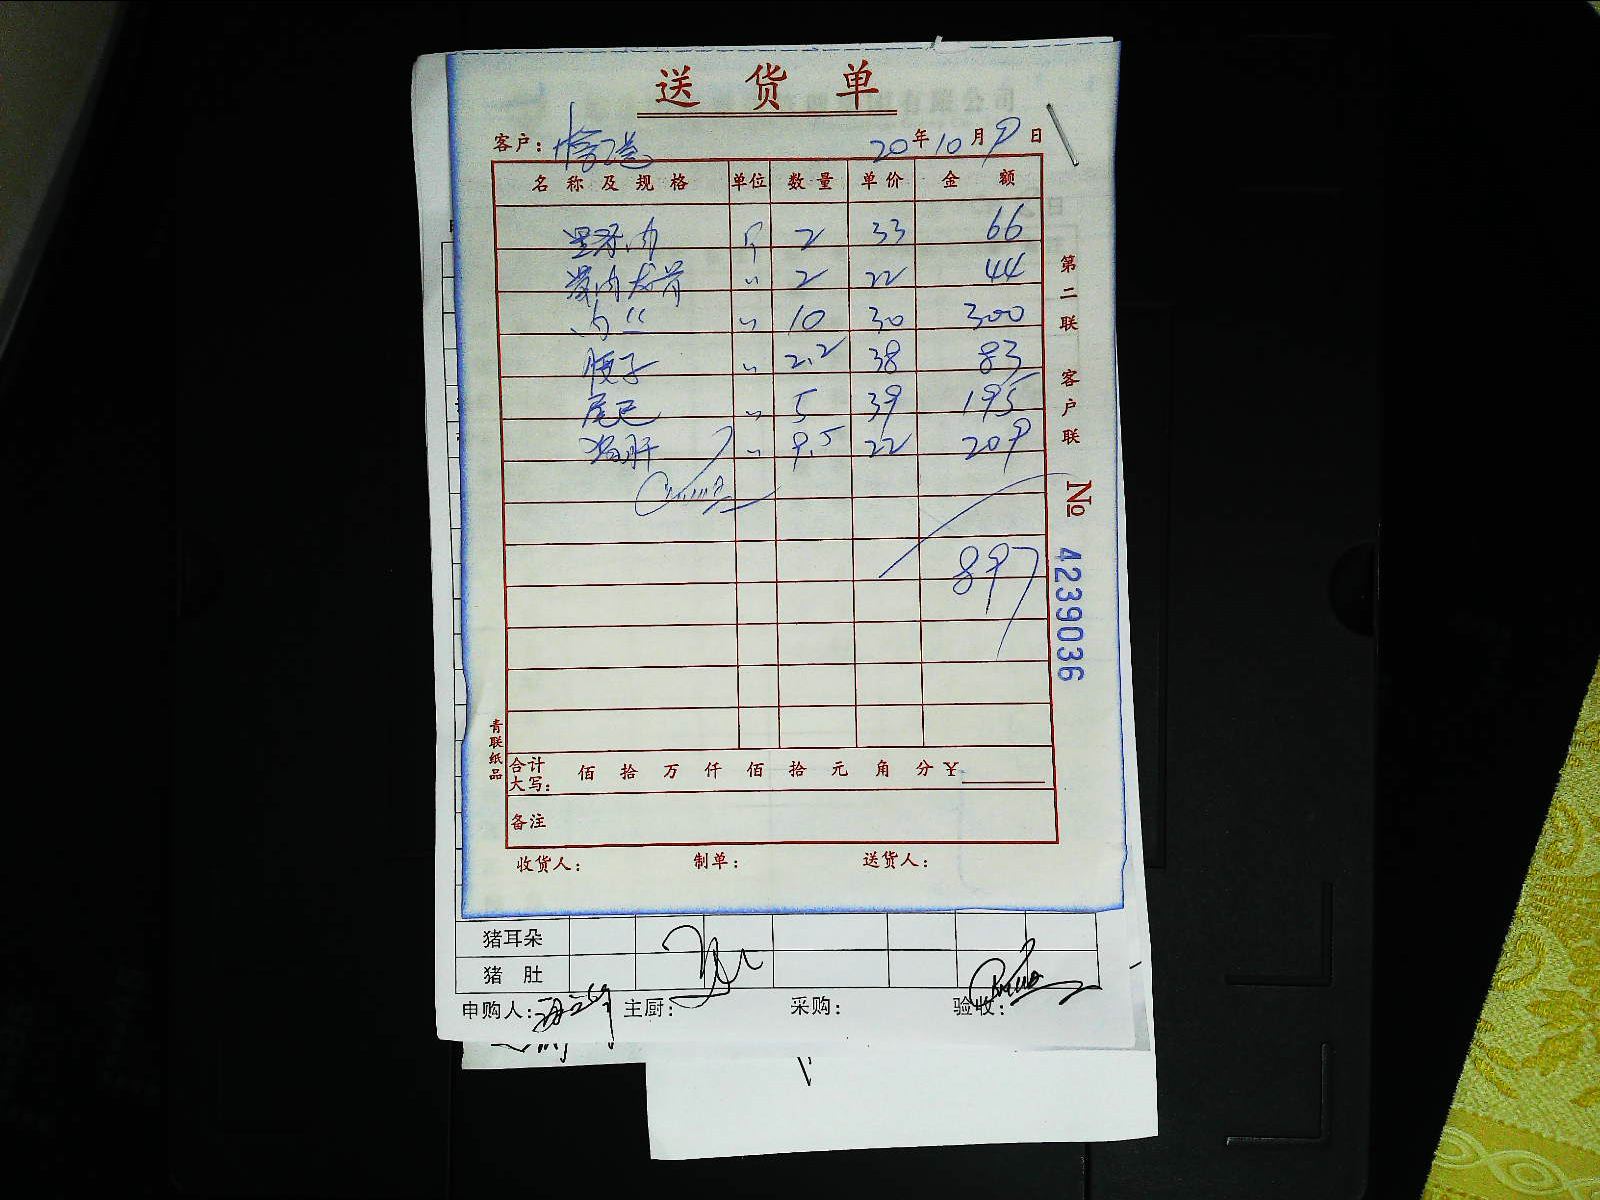 送货单
客户：
20年10月9日
名称及规格 单位 数量 单价 金额
里脊肉 斤 2 33 66
带肉龙骨 〃 2 22 44
肉丝 〃 10 30 300
腰子 〃 2.2 38 83
尾巴 〃 5 39 195
猪肝 〃 9.5 22 209
897
合计大写： 佰 拾 万 仟 佰 拾 元 角 分 ¥
备注
收货人： 制单： 送货人：
第二联 客户联
№ 4239036
青联纸品
猪耳朵
猪肚
申购人： 主厨： 采购： 验收：